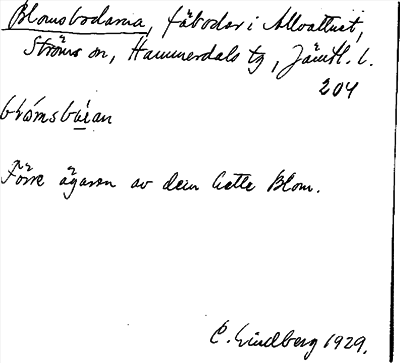 Blomsbodarna, fäbodar i Alloattnet,
Ströms sn, Hammerdals tg, Jämtl. l.
204
Förre ägaren av dem hette Blom.
C. Lindberg 1929.